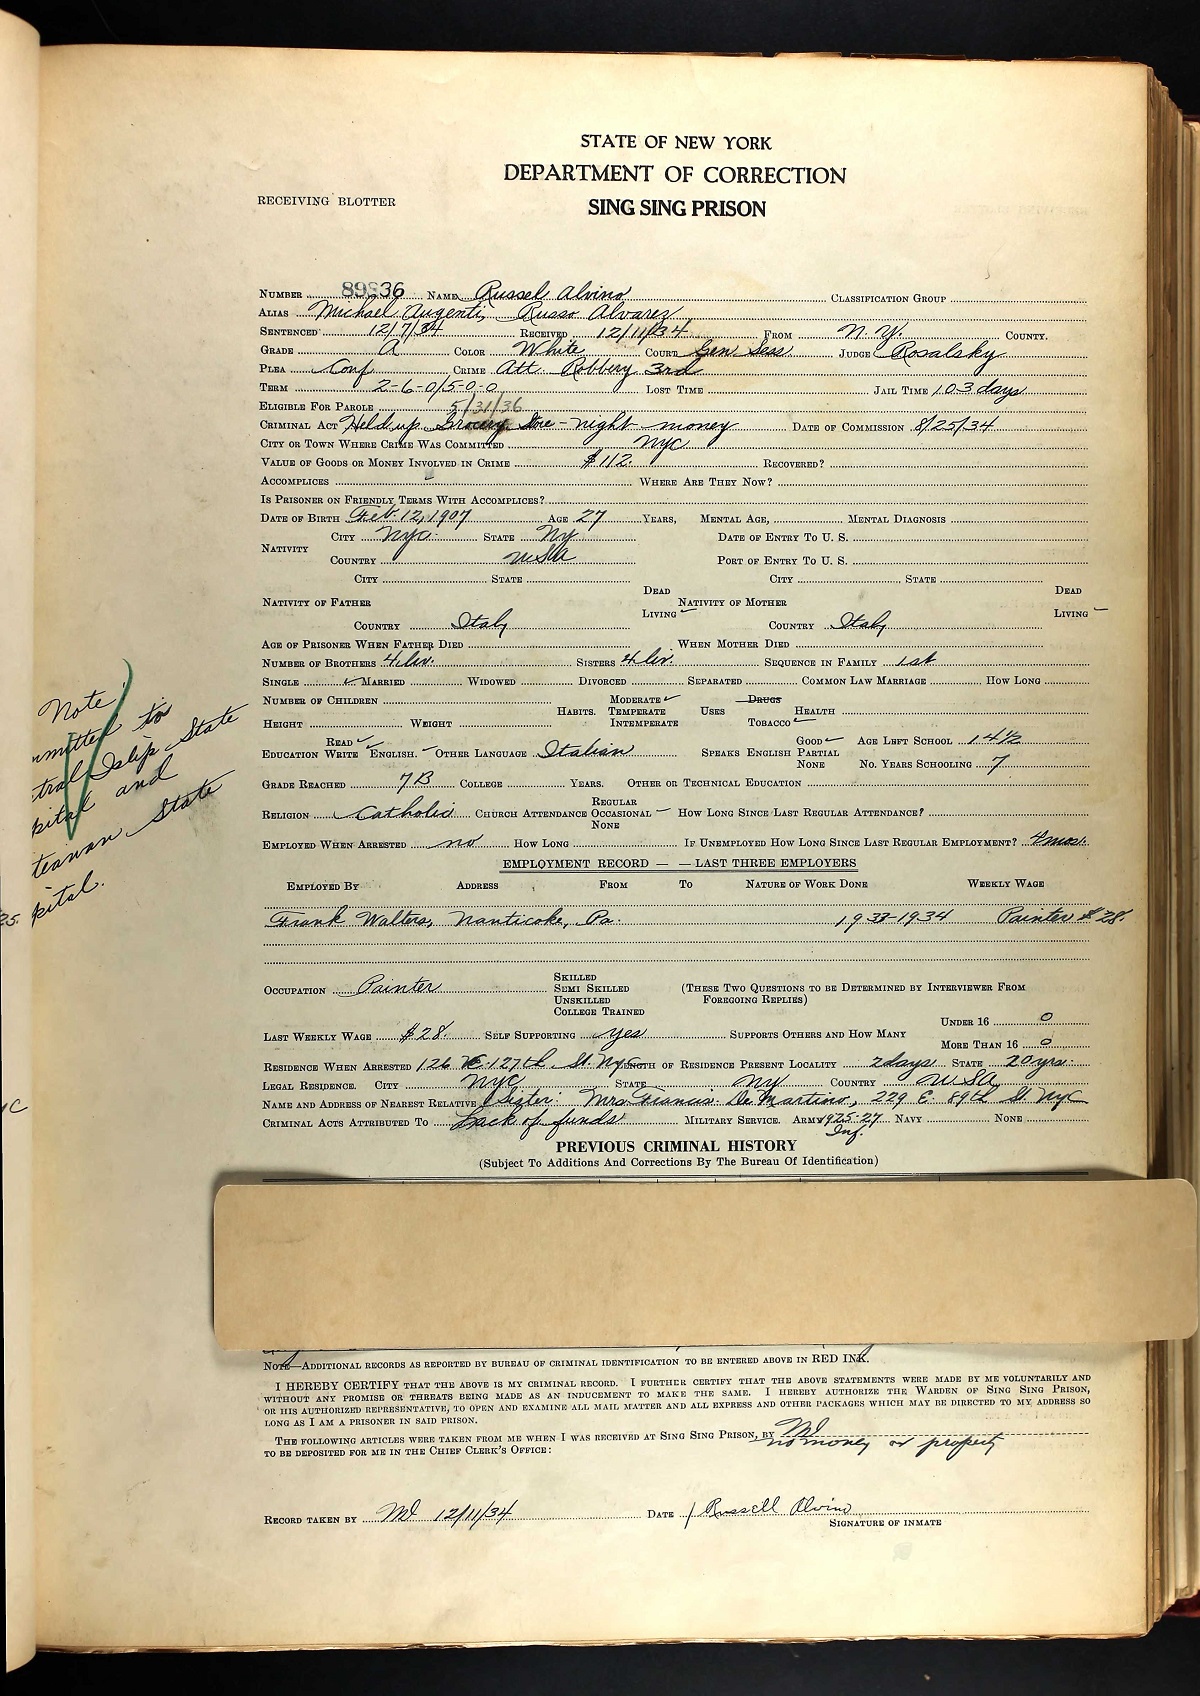 STATE OF NEW YORK
DEPARTMENT OF CORRECTION
RECEIVING BLOTTER
SING SING PRISON
NUMBER 89836 NAME Russel Alvino CLASSIFICATION GROUP
ALIAS Michael Augenti, Russo Alvarez
SENTENCED 12/7/34 RECEIVED 12/11/34 FROM N.Y. COUNTY.
GRADE A COLOR White COURT Gen Sess JUDGE Rosalsky
PLEA Conf CRIME Att Robbery 3rd
TERM 2-6-0/5-0-0 LOST TIME JAIL TIME 103 days
ELIGIBLE FOR PAROLE 5/31/36
CRIMINAL ACT Held up Grocery Store - night - money DATE OF COMMISSION 8/25/34
CITY OR TOWN WHERE CRIME WAS COMMITTED NYC
VALUE OF GOODS OR MONEY INVOLVED IN CRIME $112. RECOVERED?
ACCOMPLICES WHERE ARE THEY NOW?
IS PRISONER ON FRIENDLY TERMS WITH ACCOMPLICES?
DATE OF BIRTH Feb. 12, 1907 AGE 27 YEARS, MENTAL AGE, MENTAL DIAGNOSIS
CITY NYC. STATE NY DATE OF ENTRY TO U. S.
NATIVITY
COUNTRY USA PORT OF ENTRY TO U. S.
CITY STATE CITY STATE
DEAD DEAD
NATIVITY OF FATHER LIVING ✓ NATIVITY OF MOTHER LIVING ✓
COUNTRY Italy COUNTRY Italy
AGE OF PRISONER WHEN FATHER DIED WHEN MOTHER DIED
NUMBER OF BROTHERS 4 liv. SISTERS 4 liv. SEQUENCE IN FAMILY 1st
SINGLE ✓ MARRIED WIDOWED DIVORCED SEPARATED COMMON LAW MARRIAGE HOW LONG
NUMBER OF CHILDREN MODERATE ✓ DRUGS
HABITS. TEMPERATE USES HEALTH
HEIGHT WEIGHT INTEMPERATE TOBACCO ✓
READ ✓ GOOD ✓ AGE LEFT SCHOOL 14½
EDUCATION WRITE ✓ ENGLISH. ✓ OTHER LANGUAGE Italian SPEAKS ENGLISH PARTIAL
NONE NO. YEARS SCHOOLING 7
GRADE REACHED 7B COLLEGE YEARS. OTHER OR TECHNICAL EDUCATION
REGULAR
RELIGION Catholic CHURCH ATTENDANCE OCCASIONAL ✓ HOW LONG SINCE LAST REGULAR ATTENDANCE?
NONE
EMPLOYED WHEN ARRESTED no HOW LONG IF UNEMPLOYED HOW LONG SINCE LAST REGULAR EMPLOYMENT? 4 mos.
EMPLOYMENT RECORD — — LAST THREE EMPLOYERS
EMPLOYED BY ADDRESS FROM TO NATURE OF WORK DONE WEEKLY WAGE
Frank Walters, Nanticoke, Pa. 1933-1934 Painter $28.
SKILLED
OCCUPATION Painter SEMI SKILLED (THESE TWO QUESTIONS TO BE DETERMINED BY INTERVIEWER FROM
UNSKILLED FOREGOING REPLIES)
COLLEGE TRAINED
UNDER 16 0
LAST WEEKLY WAGE $28. SELF SUPPORTING yes SUPPORTS OTHERS AND HOW MANY
MORE THAN 16 0
RESIDENCE WHEN ARRESTED 126 E. 127th St. NYC LENGTH OF RESIDENCE PRESENT LOCALITY 2 days STATE 20 yrs.
LEGAL RESIDENCE. CITY NYC STATE NY COUNTRY USA
NAME AND ADDRESS OF NEAREST RELATIVE Sister: Mrs. Francis De Martino, 229 E. 89th St NYC
CRIMINAL ACTS ATTRIBUTED TO Lack of funds MILITARY SERVICE. ARMY 1925-27 NAVY NONE
Inf.
PREVIOUS CRIMINAL HISTORY
(Subject To Additions And Corrections By The Bureau Of Identification)
NOTE—ADDITIONAL RECORDS AS REPORTED BY BUREAU OF CRIMINAL IDENTIFICATION TO BE ENTERED ABOVE IN RED INK.
I HEREBY CERTIFY THAT THE ABOVE IS MY CRIMINAL RECORD. I FURTHER CERTIFY THAT THE ABOVE STATEMENTS WERE MADE BY ME VOLUNTARILY AND
WITHOUT ANY PROMISE OR THREATS BEING MADE AS AN INDUCEMENT TO MAKE THE SAME. I HEREBY AUTHORIZE THE WARDEN OF SING SING PRISON,
OR HIS AUTHORIZED REPRESENTATIVE, TO OPEN AND EXAMINE ALL MAIL MATTER AND ALL EXPRESS AND OTHER PACKAGES WHICH MAY BE DIRECTED TO MY ADDRESS SO
LONG AS I AM A PRISONER IN SAID PRISON.
THE FOLLOWING ARTICLES WERE TAKEN FROM ME WHEN I WAS RECEIVED AT SING SING PRISON, BY
TO BE DEPOSITED FOR ME IN THE CHIEF CLERK'S OFFICE: no money or property
RECORD TAKEN BY 12/11/34 DATE Russell Alvino
SIGNATURE OF INMATE
Note:
mmitted to
tral Islip State
pital and
teawan State
pital.